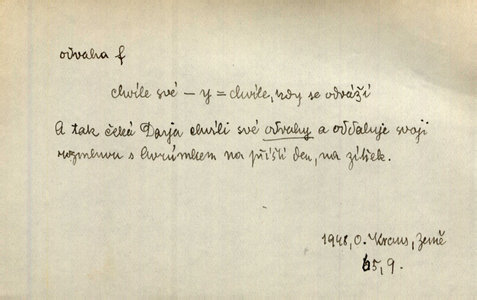 odvaha f
chvíle své – y = chvíle, kdy se odváží
A tak čeká Darja chvíli své odvahy a oddaluje svoji
rozmluvu s Avrúmkem na příští den, na zítřek.
1948, O. Kraus, Země
65, 9.